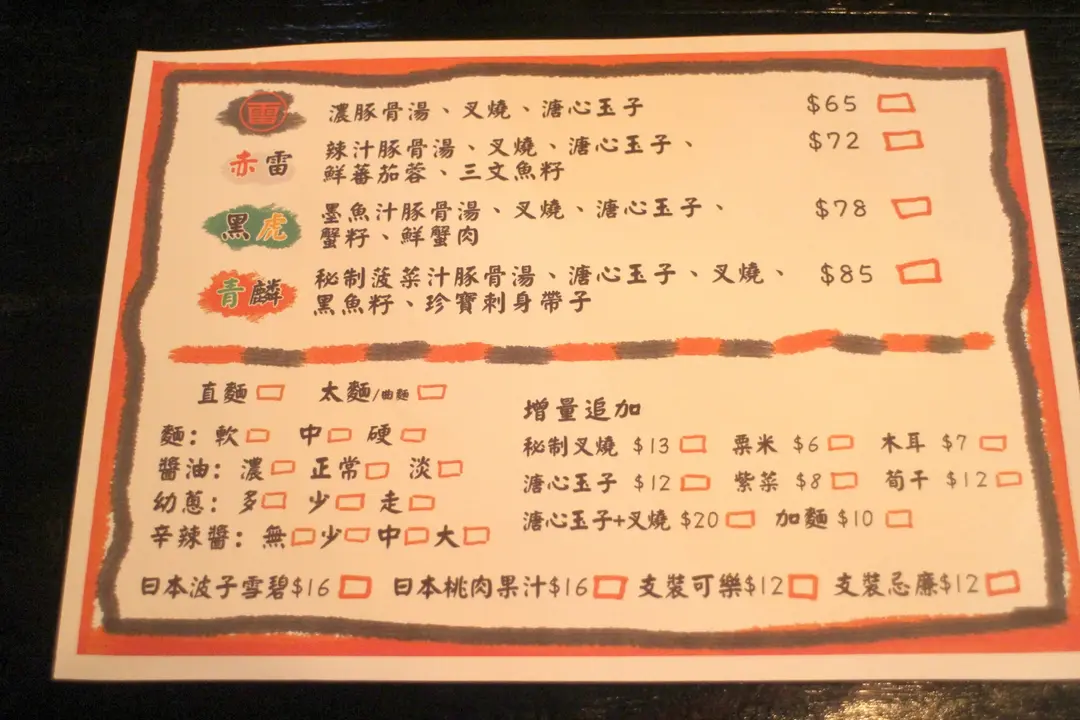 雷 濃豚骨湯、叉燒、溏心玉子 $65
赤雷 辣汁豚骨湯、叉燒、溏心玉子、 $72
鮮蕃茄蓉、三文魚籽
黑虎 墨魚汁豚骨湯、叉燒、溏心玉子、 $78
蟹籽、鮮蟹肉
青麟 秘制菠菜汁豚骨湯、溏心玉子、叉燒、 $85
黑魚籽、珍寶刺身帶子
直麵 太麵/曲麵
麵：軟 中 硬
醬油：濃 正常 淡
幼蔥：多 少 走
辛辣醬：無 少 中 大
增量追加
秘制叉燒 $13 粟米 $6 木耳 $7
溏心玉子 $12 紫菜 $8 荀干 $12
溏心玉子+叉燒 $20 加麵 $10
日本波子雪碧$16 日本桃肉果汁$16 支裝可樂$12 支裝忌廉$12